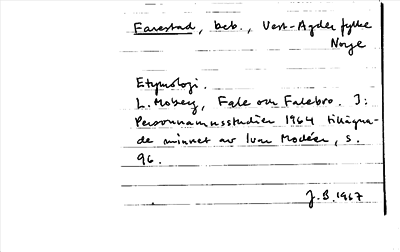 Farestad, beb., Vest-Agder fylke
Norge
Etymologi.
L. Moberg, Fale och Falebro. I:
Personnamnsstudier 1964 tillägna-
de minnet av Ivar Modéer, s.
96.
J.B. 1967